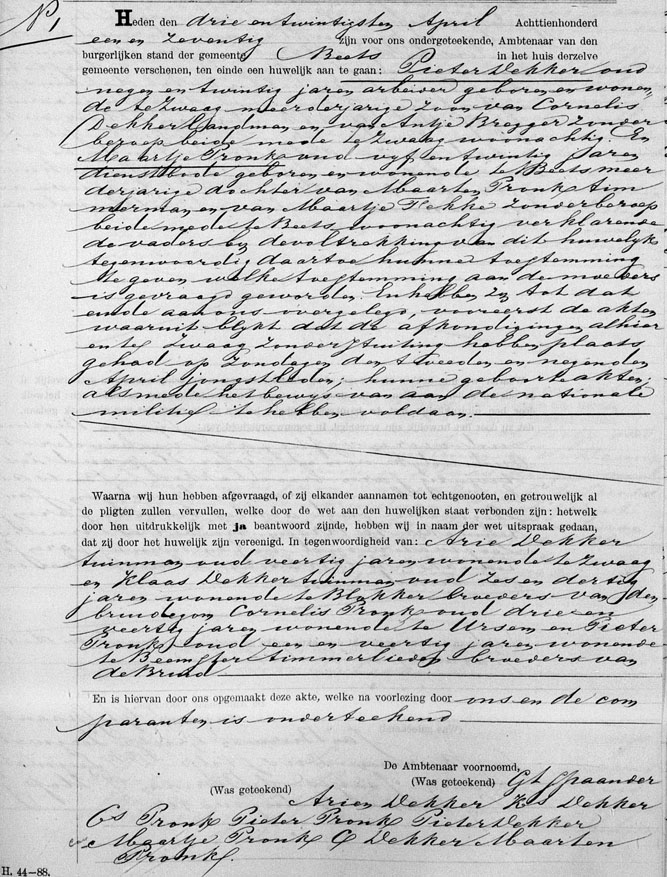 No 1
Heden den drie en twintigsten April Achttienhonderd
een en zeventig zijn voor ons ondergeteekende, Ambtenaar van den
burgerlijken stand der gemeente Beets in het huis derzelve
gemeente verschenen, ten einde een huwelijk aan te gaan: Pieter Dekker oud
negen en twintig jaren arbeider geboren en wonen
de te Zwaag meerderjarige zoon van Cornelis
Dekker Landman en van Antje Bregger zonder
beroep beide mede te Zwaag woonachtig. En
Maartje Pronk oud vyf en twintig jaren
dienstbode geboren en wonende te Beets meer
derjarige dochter van Maarten Pronk tim
merman en van Maartje Fekke zonder beroep
beide mede te Beets woonachtig verklarende
de vaders by de voltrekking van dit huwelyk
tegenwoordig daartoe hunne toestemming
te geven welke toestemming aan de moeders
is gevraagd geworden. En hebben zy tot dat
einde aan ons overgelegd, vooreerst de akten
waaruit blykt dat de afkondigingen alhier
en te Zwaag zonder stuiting hebben plaats
gehad op Zondagen den tweeden en negenden
April jongstleden; hunne geboorteakten,
alsmede het bewys van aan de nationale
militie te hebben voldaan.
Waarna wij hun hebben afgevraagd, of zij elkander aannamen tot echtgenooten, en getrouwelijk al
de pligten zullen vervullen, welke door de wet aan den huwelijken staat verbonden zijn: hetwelk
door hen uitdrukkelijk met ja beantwoord zijnde, hebben wij in naam der wet uitspraak gedaan,
dat zij door het huwelijk zijn vereenigd. In tegenwoordigheid van: Arie Dekker
tuinman oud veertig jaren wonende te Zwaag
en Klaas Dekker tuinman oud zes en dertig
jaren wonende te Blokker broeders van den
bruidegom Cornelis Pronk oud drie en
veertig jaren wonende te Ursem en Pieter
Pronk oud een en veertig jaren wonende
te Beemster timmerlieden broeders van
de Bruid
En is hiervan door ons opgemaakt deze akte, welke na voorlezing door ons en de com
paranten is onderteekend
De Ambtenaar voornoemd,
(Was geteekend) (Was geteekend) Gt Spaander
Arien Dekker Ks Dekker
Cs Pronk Pieter Pronk Pieter Dekker
Maartje Pronk C Dekker Maarten
Pronk.
H. 44—88.